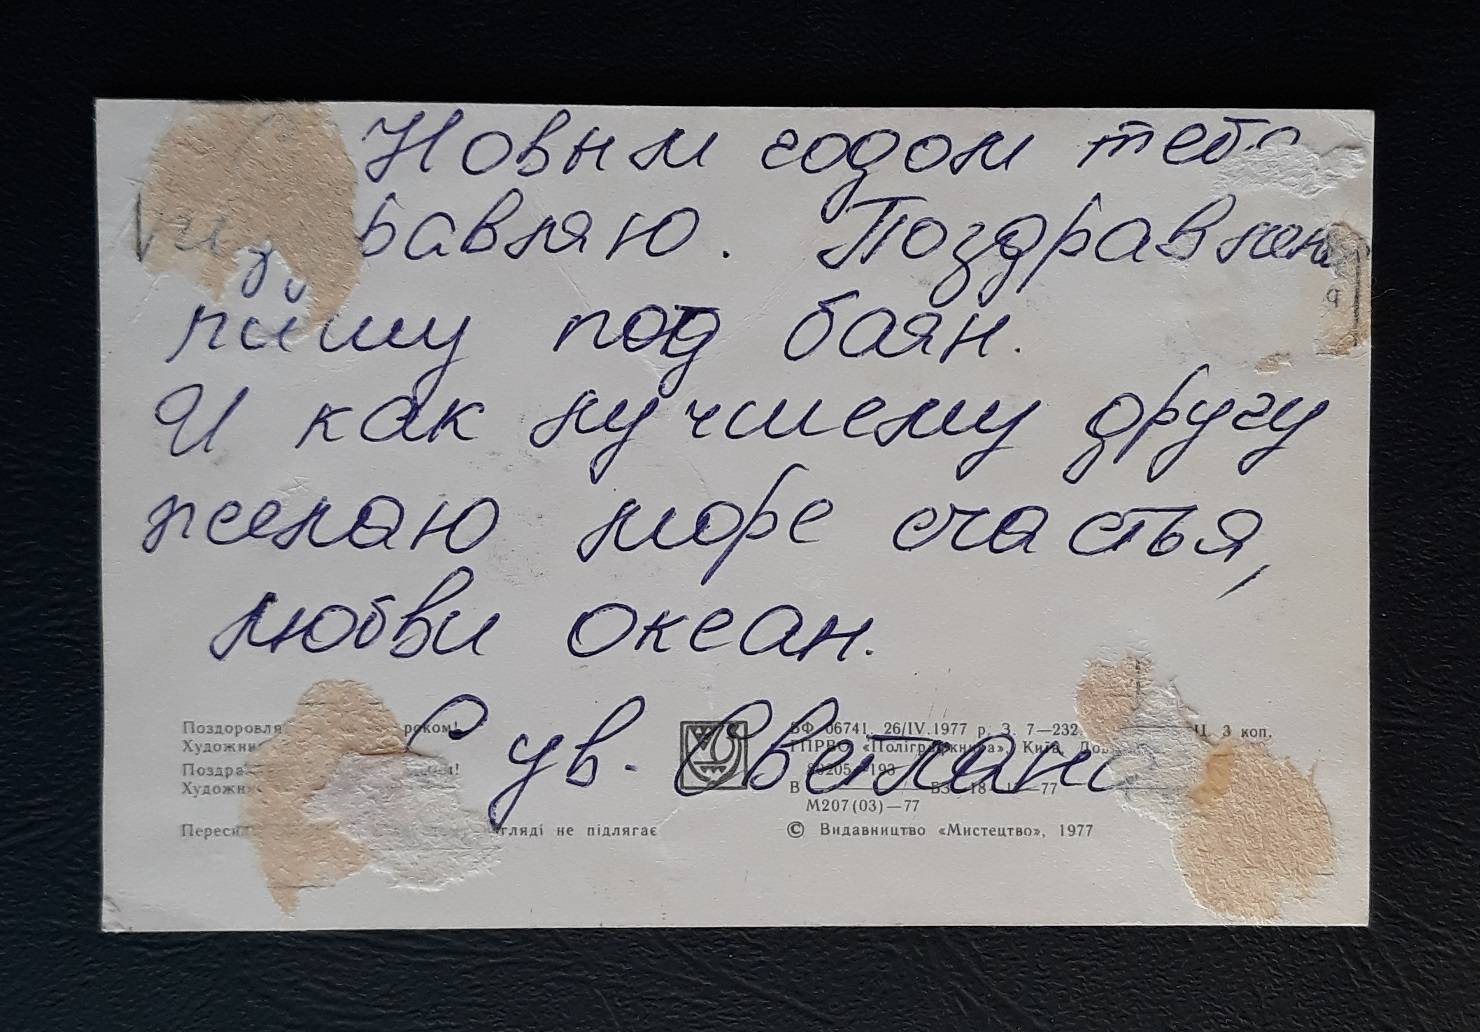 Новым годом тебя
равляю. Поздравлен
пишу под баян.
И как лучшему другу
желаю море счастья,
любви океан.
С ув. Светлана
Поздоровля роком!
Художни
Поздра
Художни
Переси гляді не підлягає
БФ 06741. 26/IV.1977 р. З. 7—232 Ц. 3 коп.
Київ,
193
77
М207(03)—77
© Видавництво «Мистецтво», 1977